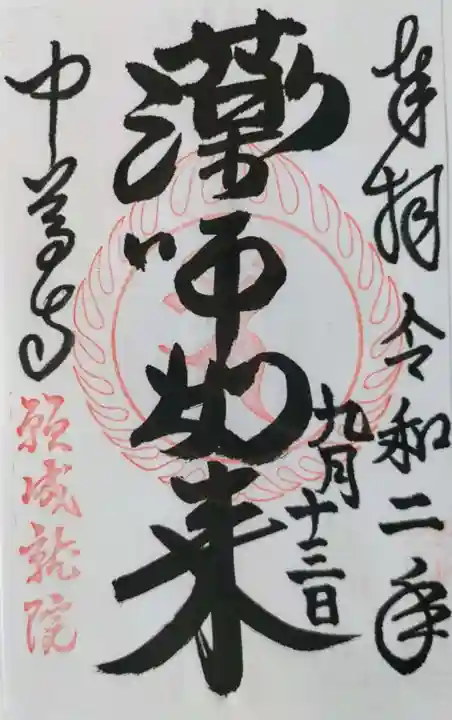 奉拝 令和二年
九月十三日
薬師如来
中尊寺
願成就院